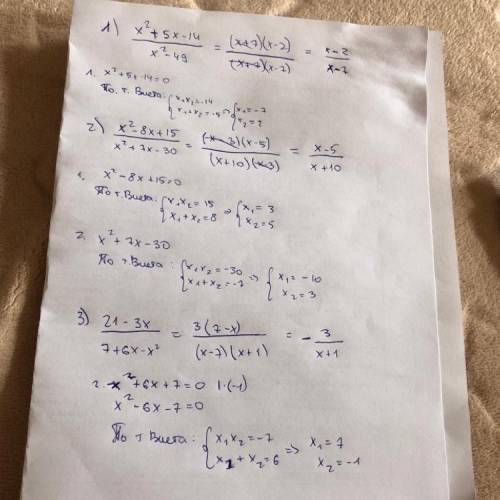 1) (x² + 5x - 14)/(x² - 49) = ((x+7)(x-2))/((x+7)(x-7)) = (x-2)/(x-7)
1. x² + 5x - 14 = 0
По т. Виета: { x₁x₂ = -14 ⇒ { x₁ = -7
x₁ + x₂ = -5 x₂ = 2
2) (x² - 8x + 15)/(x² + 7x - 30) = ((x-3)(x-5))/((x+10)(x-3)) = (x-5)/(x+10)
1. x² - 8x + 15 = 0
По т. Виета: { x₁x₂ = 15 ⇒ { x₁ = 3
x₁ + x₂ = 8 x₂ = 5
2. x² + 7x - 30
По т. Виета: { x₁x₂ = -30 ⇒ { x₁ = -10
x₁ + x₂ = -7 x₂ = 3
3) (21 - 3x)/(7 + 6x - x²) = (3(7-x))/((x-7)(x+1)) = - 3/(x+1)
-x² + 6x + 7 = 0 |·(-1)
x² - 6x - 7 = 0
По т Виета: { x₁x₂ = -7 ⇒ x₁ = 7
x₁ + x₂ = 6 x₂ = -1